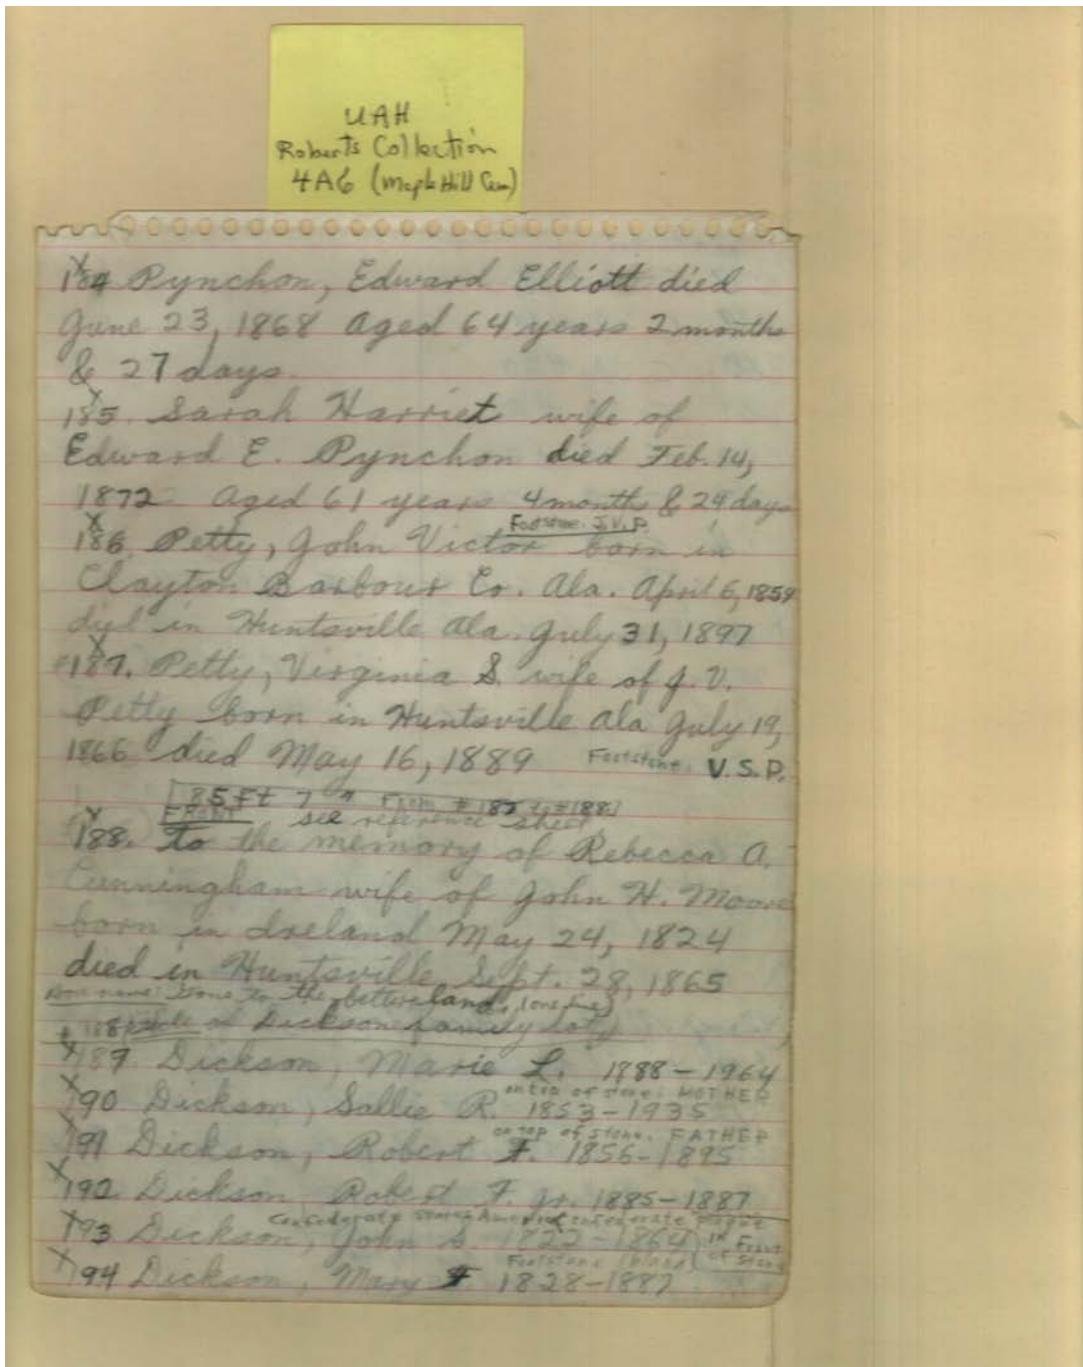 UAH
Roberts Collection
4A6 (Maple Hill Cem)
184 Pynchon, Edward Elliott died
June 23, 1868 Aged 64 years 2 months
& 27 days.
185. Sarah Harriet wife of
Edward E. Pynchon died Feb. 14,
1872 Aged 61 years 4 months & 24 days
Footstone: J.V.P.
186. Petty, John Victor born in
Clayton Barbour Co. Ala. April 6, 1859
died in Huntsville Ala. July 31, 1897
187. Petty, Virginia S. wife of J. V.
Petty born in Huntsville Ala July 19,
1866 died May 16, 1889 Footstone: V.S.P.
85 Ft 7" From #187 to #188
FRONT see reference sheet
188. To the memory of Rebecca A.
Cunningham wife of John H. Moore
born in Ireland May 24, 1824
died in Huntsville Sept. 28, 1865
name: Gone to the better land. (one line)
188 side of Dickson family lot
189. Dickson, Marie L. 1888-1964
on top of stone: MOTHER
190 Dickson, Sallie R. 1853-1935
on top of stone. FATHER
191 Dickson, Robert F. 1856-1895
192 Dickson Robert F. Jr. 1885-1887
Confederate States America Confederate Plaque
193 Dickson, John S. 1822-1864 in Front of Stone
Footstone (blank)
194 Dickson, Mary F. 1828-1887